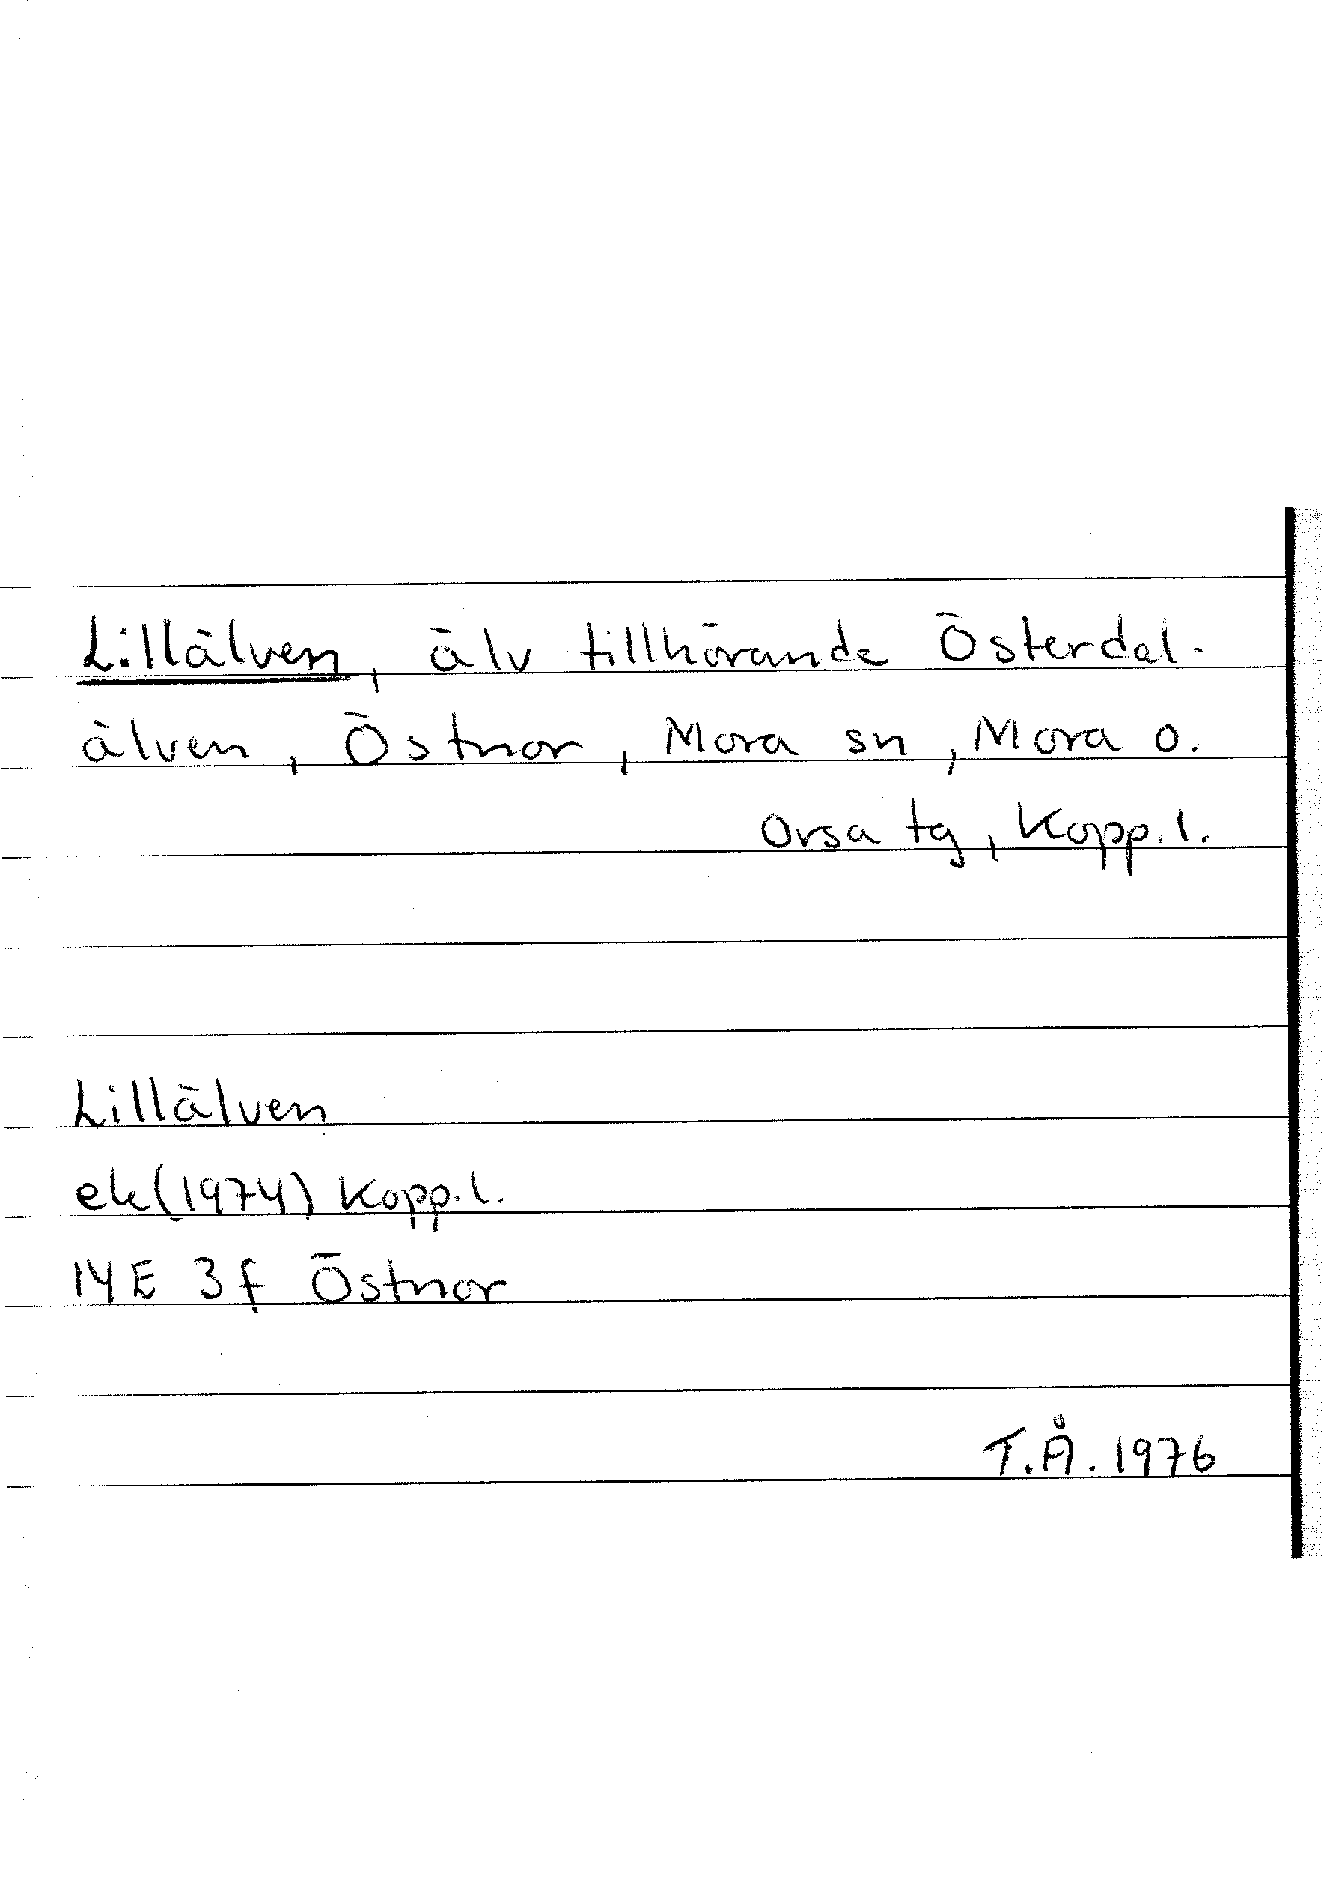 Lillälven, älv tillhörande Österdal-
älven, Östnor, Mora sn, Mora o.
Orsa tg, Kopp.l.
Lillälven
ek(1974) Kopp.l.
14E 3f Östnor
T.Å. 1976